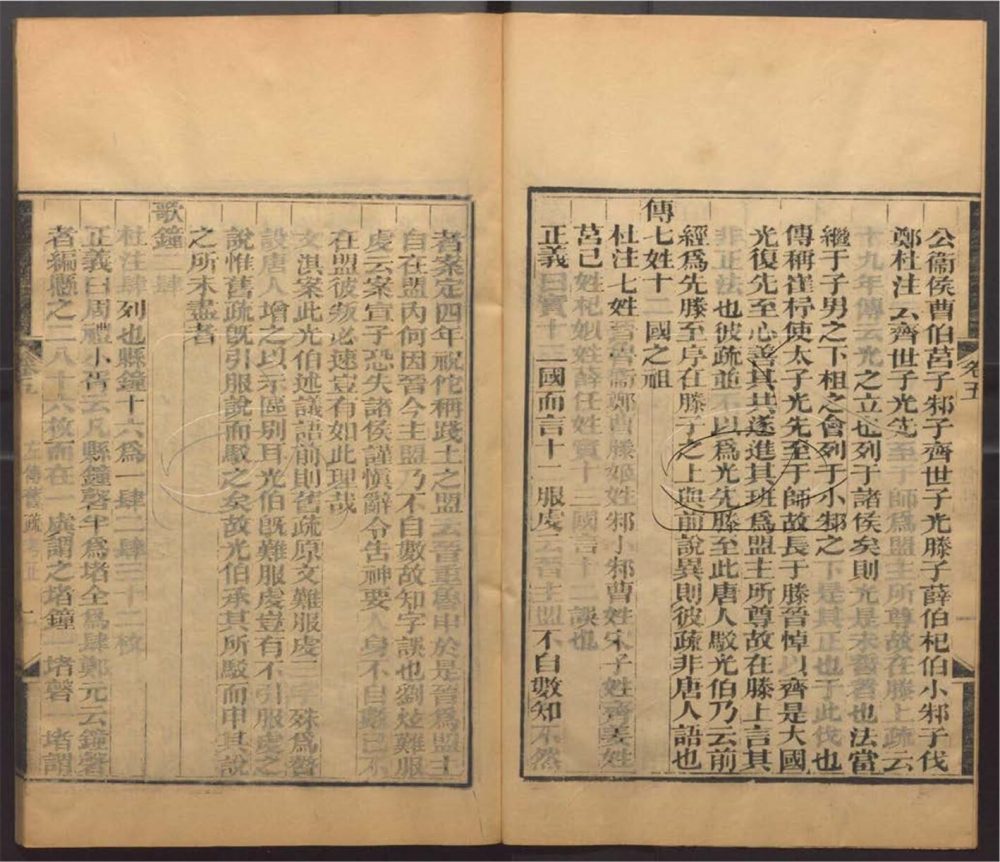 公衞侯曹伯莒子邾子齊世子光滕子薛伯杞伯小邾子伐
鄭杜注云齊世子光先至于師爲盟主所尊故在滕上疏云
十九年傳云光之立也列于諸侯矣則光是未誓者也法當
繼于子男之下相之會列于小邾之下是其正也于此伐也
傳稱崔杼使太子光先至于師故長于滕晉悼以齊是大國
光復先至心善其共遂進其班爲盟主所尊故在滕上言其
非正法也彼疏並不以爲光先滕至此唐人駁光伯乃云前
經爲先滕至序在滕子之上與前說異則彼疏非唐人語也
傳七姓十二國之祖
杜注七姓晉魯衞鄭曹滕姬姓邾小邾曹姓宋子姓齊姜姓
莒己姓杞姒姓薛任姓實十三國言十二誤也
正義曰實十三國而言十二服虔云晉主盟不自數知不然
卷五
者案定四年祝佗稱踐土之盟云晉重魯申於是晉爲盟主
自在盟內何因晉今主盟乃不自數故知字誤也劉炫難服
虔云案宣子恐失諸侯謹愼辭令告神要人身不自數己不
在盟彼叛必速豈有如此理哉
文淇案此光伯述議語前則舊疏原文難服虔二 殊爲
設唐人增之以示區別耳光伯旣難服虔豈有不引服虔之
說惟舊疏旣引服說而駁之矣故光伯承其所駁而申其說
之所未盡者
歌鐘二肆
杜注肆列也縣鐘十六爲一肆二肆三十二枚
正義曰周禮小胥云凡縣鐘磬半爲堵全爲肆鄭元云鐘磬
者編縣之二八十六枚而在一虡謂之堵鐘一堵磬一堵謂
左傳舊疏考正